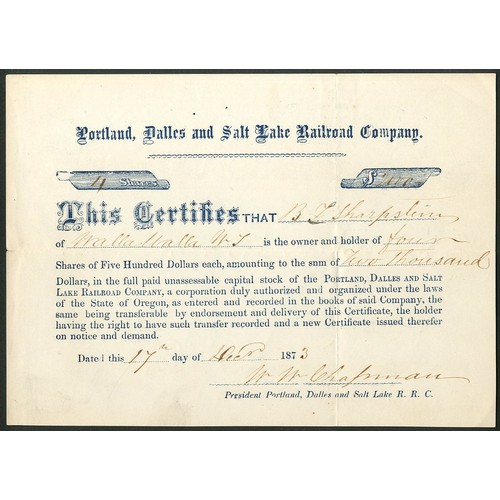 Portland, Dalles and Salt Lake Railroad Company.
4 Shares $
This Certifies THAT B L Sharpstein
of Walla Walla W T is the owner and holder of four
Shares of Five Hundred Dollars each, amounting to the snm of Two thousand
Dollars, in the full paid unassessable capital stock of the PORTLAND, DALLES AND SALT
LAKE RAILROAD COMPANY, a corporation duly authorized and organized under the laws
of the State of Oregon, as entered and recorded in the books of said Company, the
same being transferable by endorsement and delivery of this Certificate, the holder
having the right to have such transfer recorded and a new Certificate issued therefor
on notice and demand.
Dated this 17th day of Decr 1873
W W Chapman
President Portland, Dalles and Salt Lake R. R. C.